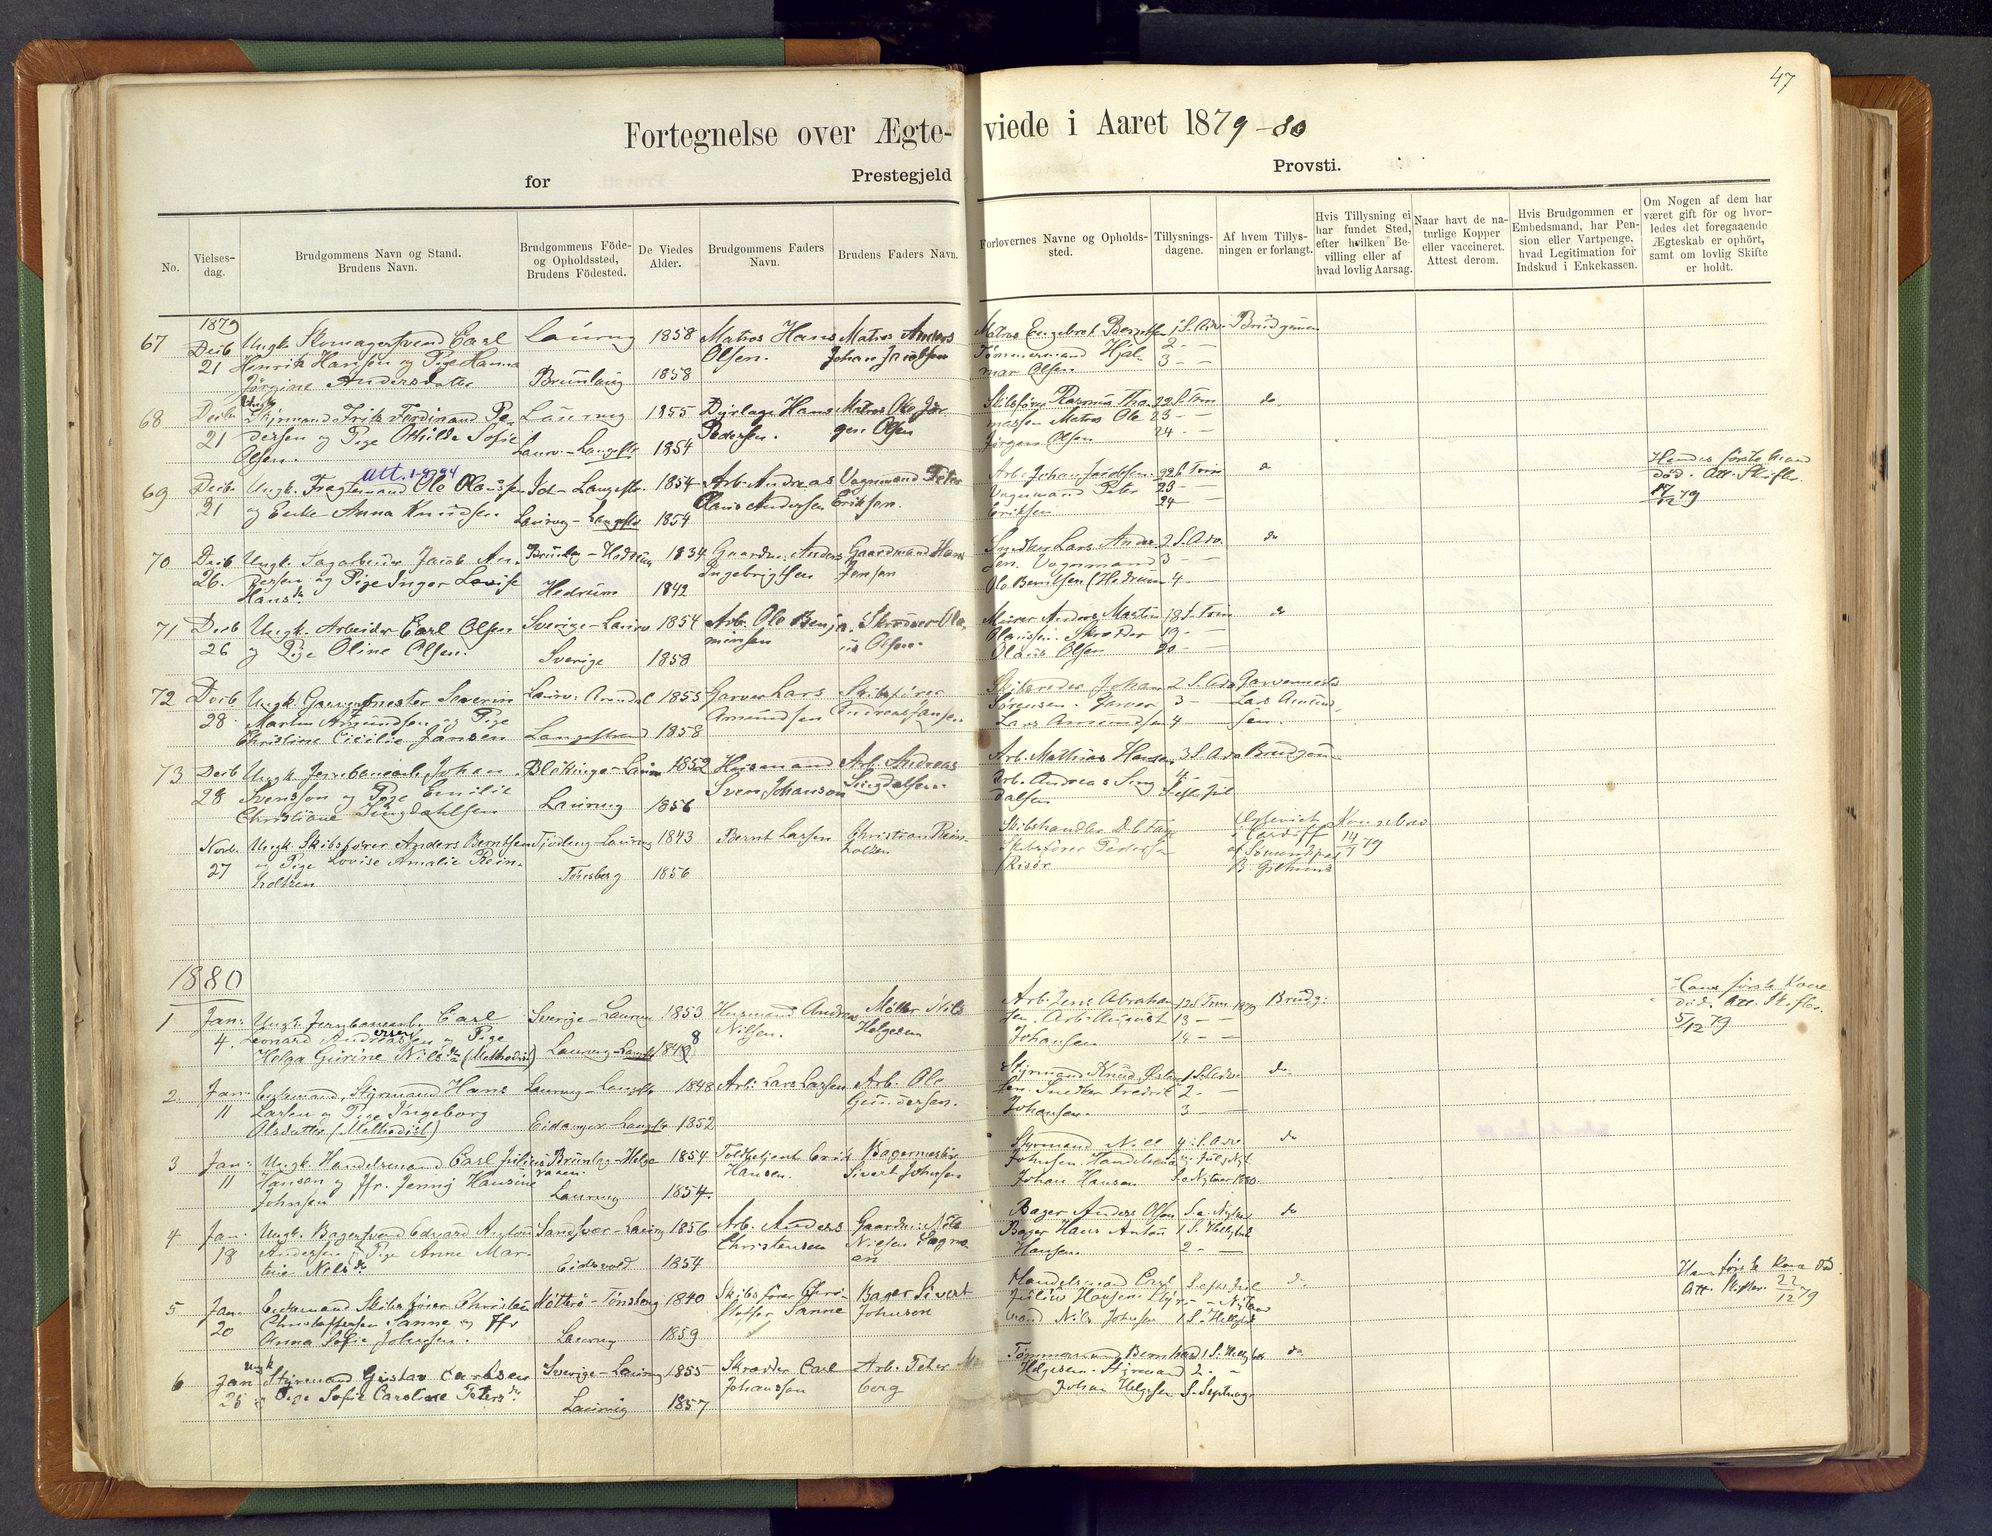 47
Fortegnelse over Ægteviede i Aaret 1879-80
for Prestegjeld Provsti.
No.
Vielses-
dag.
Brudgommens Navn og Stand.
Brudens Navn.
Brudgommens Föde-
og Opholdssted,
Brudens Födested.
De Viedes
Alder.
Brudgommens Faders
Navn.
Brudens Faders Navn.
Forlovernes Navne og Opholds-
sted.
Tillysnings-
dagene.
Af hvem Tillys-
ningen er forlangt.
Hvis Tillysning ei
har fundet Sted,
efter hvilken Be-
villing eller af
hvad lovlig Aarsag.
Naar havt de na-
turlige Kopper
eller vaccineret
Attest derom.
Hvis Brudgommen er
Embedsmand, har Pen-
sion eller Vartpenge,
hvad Legitimation for
Indskud i Enkekassen.
Om Nogen af dem har
været gift för og hvor-
ledes det foregaaende
Ægteskab er ophört,
samt om lovlig Skifte
er holdt.
1879
67 Decb 21
Ungk. Skomagersvend Carl
Henrik Hansen og Pige Hanna
Jørgine Andersdatter
Laurvig
Brunlaug
1858
1858
Matros Hans
Olsen.
Matros Anders
Johan Jacobsen
Matros Engebret Berntsen
Tømmermand Hjal-
mar Olsen
1 S. Adv.
2 - -
3 - -
Brudgommen
68 Decbr 21
Ungk
Styrmand Frits Ferdinand Pe-
dersen og Pige Othilde Sofie
Olsen.
Laurvig
Laurv.-Langestr.
1855
1854
Hans
Pedersen.
Matros Ole Jør-
gen Olsen
Skibsfører Rasmus Tho-
massen Matros Ole
Jørgen Olsen
22 S. Trin
23 - -
24 - -
do.
Att. 1-9-94
69 Decbr 21
Ungk. Fragtemand Ole Olaussen
og Enke Anna Knudsen
Langestr.
Laurvig-Langestr.
1854
1854
Arb. Andreas
Olaus Andersen
Vognmand Peter
Eriksen.
Arb. Johan Jacobsen
Vognmand Peter
Eriksen
22 S. Trin
23 - -
24
Hendes første Mand
død. Att. Skifter.
17/12 79
70 Decb 26.
Ungk. Sagarbeider Jacob An-
dersen og Pige Inger Lovise
Hansdr
Brunlag-Hedrum
Hedrum
1834
1842
Gaardm. Anders
Ingebrigtsen
Gaardmand Hans
Jensen
Snedker Lars Ander-
sen. Vognmand
Ole Berntsen (Hedrum
2 S. Adv.
3 - -
4 -
do
71 Decb 26
Ungk. Arbeider Carl Olsen
og Pige Oline Olsen.
Sverige-Laurv
Sverige
1854
1858
Arb. Ole Benja-
minsen
Skræder Ola-
us Olsen.
Murer Anders Martin
Olaussen. Skrædder
Olaus Olsen
18 S. Trin
19 - -
20 - -
do
72 Decb 28
Ungk. Garvermester Severin
Martin Amundsen og Pige
Christine Cicilie Jansen
Laurv: Arendal
Langestrand
1855
1858
Garver Lars
Amundsen
Skibsfører
Andreas Jansen
Skibsreder Johan
Sørensen. Garver
Lars Amundsen
2 S. Adv
3 -
4 -
Garvermester
Lars Amund-
sen.
73 Decb 28
Ungk. Jernbanearb. Johan
Svensson og Pige Emilie
Christiane Singdahlsen
Blekinge-Laurv
Laurvig
1852
1856
Husmand
Sven Johanson
Arb Andreas
Singdalsen.
Arb. Mathias Hansen
Arb. Andreas Sing-
dalsen
3 S. Adv
4 -
S. eft. Jul
Brudgom
Novb. 27
Ungk. Skibsfører Anders Berntsen
og Pige Lovise Amalie Rein-
holtzen
Laurvig
Tønsberg
1843
1856
Bernt Larsen
Christian Rein-
holtzen
Skibshandler
Skibsfører Pedersen
(Risør
i Cardiff
af Sømandsprest
14/7 79
1880
1 Jan: 4.
Ungk. Jernbanearb. Carl
Leonard Andreassen og Pige
Helga Gurine Nilsdr (Methodist)
Sverige-Laurvig
Laurvig-Langestr
1853
1848
Husmand Andreas
Nilsen.
Møller Nils
Helgesen
Arb. Jens Abraham-
sen. Arb. August
Johansen
12 S. Trin 1879
13 - -
14 - -
Brudg:
Hans første Kone
død. Att. Skifter.
5/12 79
2 Jan: 11
Enkemand, Styrmand Hans
Larsen og Pige Ingeborg
Olsdatter (Methodist)
Laurvig-Langestr
Eidanger-Langestr
1848
1852
Arb: Lars Larsen
Arb. Ole
Gundersen.
Styrmand Knud
sen. Snedker Fredrik
Johansen.
1 S. Adv
2 -
3 - -
do
3 Jan: 11
Ungk. Handelsmand Carl Julius
Hansen og Jfr. Jenny Hansine
Johnsen
Brunlag-Helge-
raaen.
Laurvig
1854
1854
Toldbetjent Erik
Hansen.
Bagermester
Sivert Johnsen
Styrmand Nill
Johnsen Handelsmand
Johan Hansen
4 S. Adv
S. e. Nytaar 1880.
do
4 Jan: 18
Ungk. Bagersvend Edvard Anton
Andersen og Pige Anne Mar-
tine Nilsdr
Sandsvær-Laurvig
Eidsvold
1856
1854
Arb. Anders
Christensen
Gaardm: Nils
Nielsen
Bager Anders Olsen
Bager Hans Anton
Hansen.
S. e. Nytaar
1 S. Helligtr
2 - -
do
5 Jan 20
Enkemand Skibsfører Christian
Christoffersen Sanne og Jfr
Anna Sofie Johnsen.
Nøtterø-Tønsberg
Laurvig
1840
1859
Skibsfører Chri-
stoffer Sanne
Bager Sivert
Johnson
Handelsmand Carl
Julius Hansen. Styr-
mand Nils Johnsen
S. eft. Jul
- Nytaar
1 S. Helligtr
do
Hans første Kone død
Att. Skifter. 22/12 79
6 Jan 25
Ungk
Styrmand Gustav Carlsen
og Pige Sofie Caroline Petersdr
Sverige-Laurvig
Laurvig
1855
1857
Skrædder Carl
Johansson
Arb. Peter
berg
Tømmermand Bernhard
Helgesen. Styrmand
Johan Helgesen
1 S. Helligtr
2 - -
S. Septuag.
do